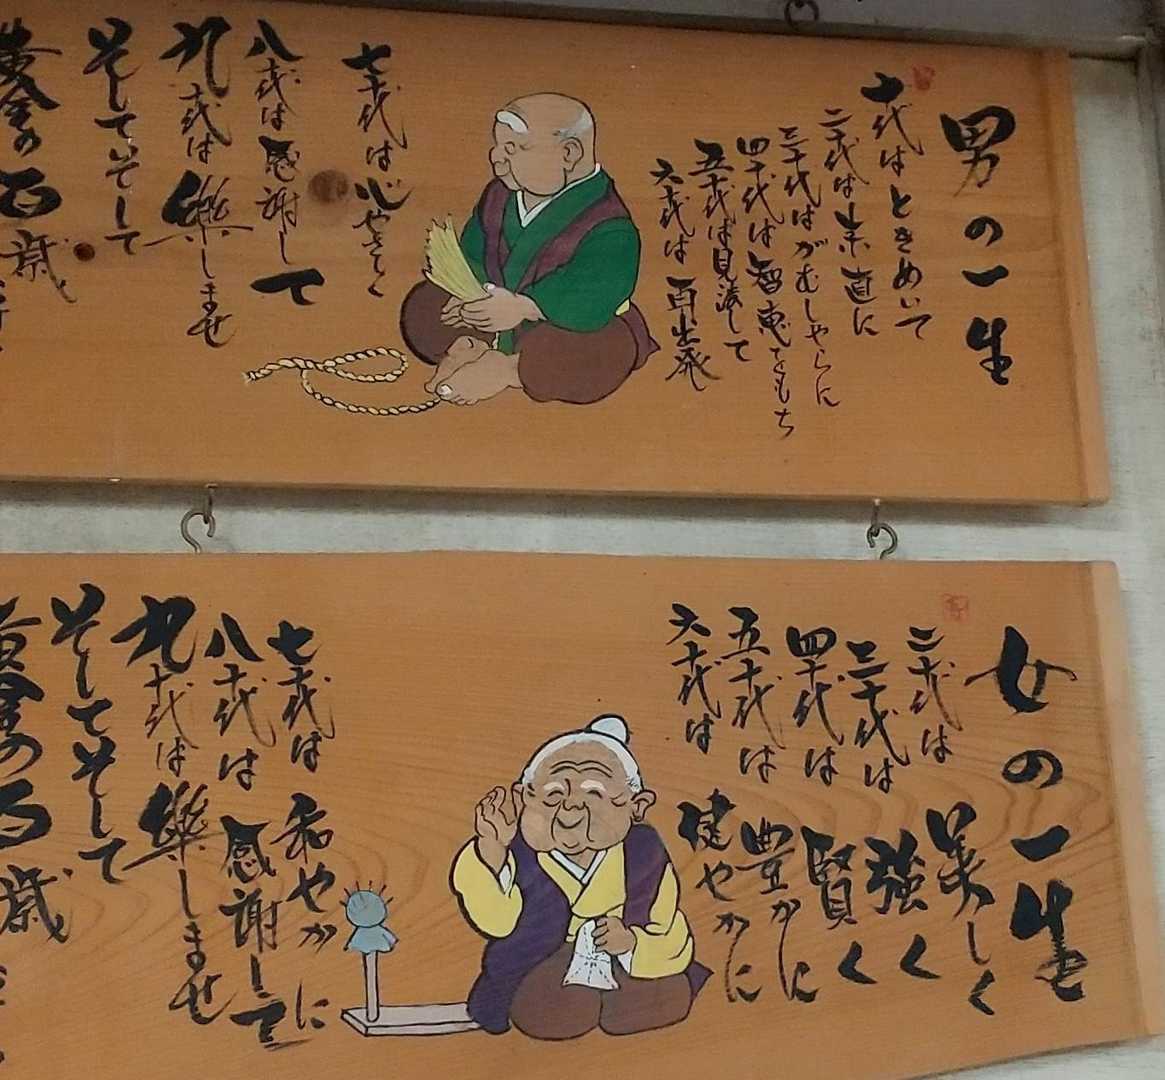 男の一生
十代はときめいて
二十代は素直に
三十代はがむしゃらに
四十代は智恵をもち
五十代は見渡して
六十代は再出発
七十代は心やさしく
八十代は感謝して
九十代は樂しませ
そしてそして
黄金の百歳
女の一生
二十代は美しく
三十代は強く
四十代は賢く
五十代は豊かに
六十代は健やかに
七十代は和やかに
八十代は感謝して
九十代は樂しませ
そしてそして
黄金の百歳